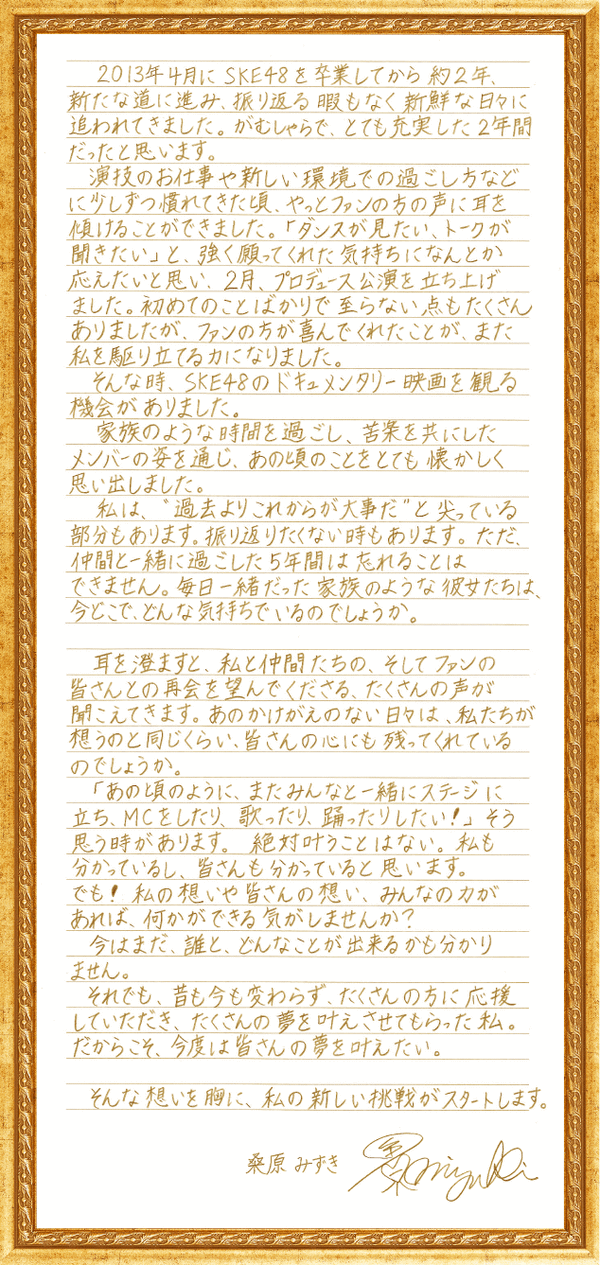 2013年4月にSKE48を卒業してから約2年、
新たな道に進み、振り返る暇もなく新鮮な日々に
追われてきました。がむしゃらで、とても充実した2年間
だったと思います。
演技のお仕事や新しい環境での過ごし方など
に少しずつ慣れてきた頃、やっとファンの方の声に耳を
傾けることができました。「ダンスが見たい、トークが
聞きたい」と、強く願ってくれた気持ちになんとか
応えたいと思い、2月、プロデュース公演を立ち上げ
ました。初めてのことばかりで至らない点もたくさん
ありましたが、ファンの方が喜んでくれたことが、また
私を駆り立てる力になりました。
そんな時、SKE48のドキュメンタリー映画を観る
機会がありました。
家族のような時間を過ごし、苦楽を共にした
メンバーの姿を通じ、あの頃のことをとても懐かしく
思い出しました。
私は、"過去よりこれからが大事だ"と尖っている
部分もあります。振り返りたくない時もあります。ただ、
仲間と一緒に過ごした5年間は忘れることは
できません。毎日一緒だった家族のような彼女たちは、
今どこで、どんな気持ちでいるのでしょうか。
耳を澄ますと、私と仲間たちの、そしてファンの
皆さんとの再会を望んでくださる、たくさんの声が
聞こえてきます。あのかけがえのない日々は、私たちが
想うのと同じくらい、皆さんの心にも残ってくれている
のでしょうか。
「あの頃のように、またみんなと一緒にステージに
立ち、MCをしたり、歌ったり、踊ったりしたい!」そう
思う時があります。 絶対叶うことはない。私も
分かっているし、皆さんも分かっていると思います。
でも! 私の想いや皆さんの想い、みんなの力が
あれば、何かができる気がしませんか?
今はまだ、誰と、どんなことが出来るかも分かり
ません。
それでも、昔も今も変わらず、たくさんの方に応援
していただき、たくさんの夢を叶えさせてもらった私。
だからこそ、今度は皆さんの夢を叶えたい。
そんな想いを胸に、私の新しい挑戦がスタートします。
桑原 みずき